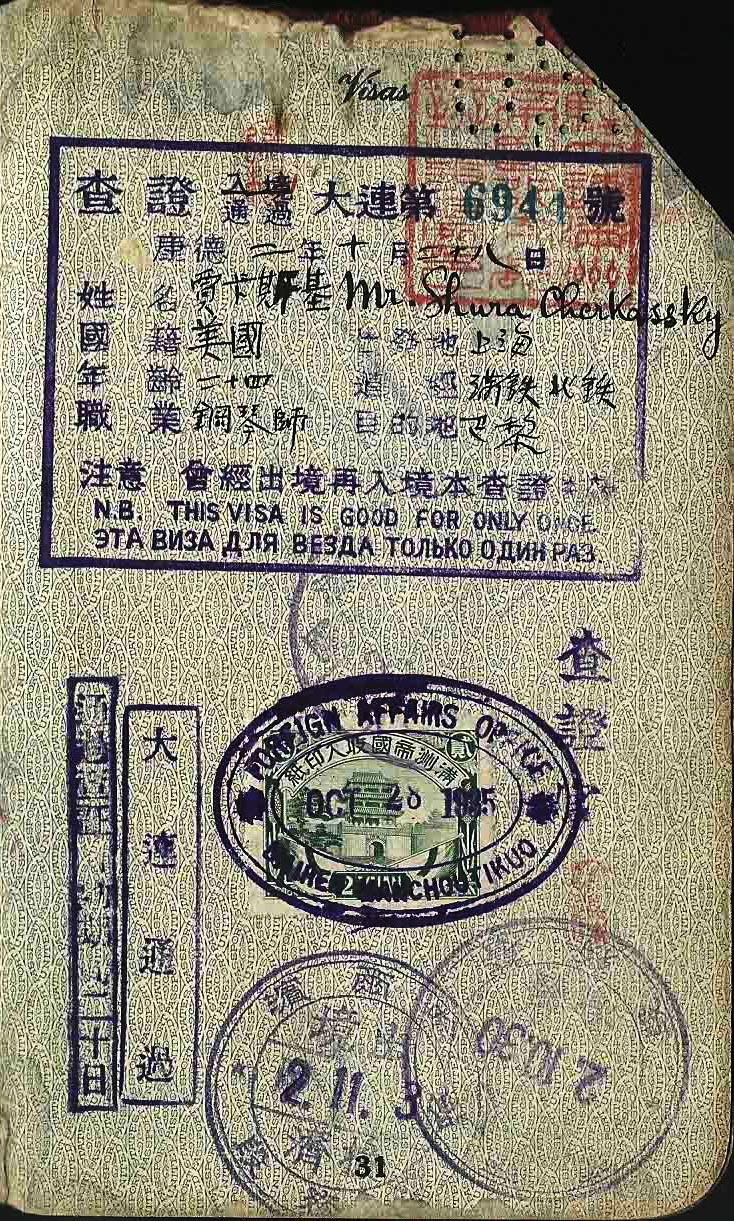 Visas
查證 入境 通過 大連第 6941 號
康德 二 年 十 月 二十八 日
姓名 賈卡斯基 Mr. Shura Cherkassky
國籍 美國 出發地 上海
年齡 二十四 道經 滿鐵北鉄
職業 鋼琴師 目的地 巴黎
注意 會經出境再入境本查證
N.B. THIS VISA IS GOOD FOR ONLY ONCE
ЭТА ВИЗА ДЛЯ ВЕЗДА ТОЛЬКО ОДИН РАЗ
查證
大連通過
十日
FOREIGN AFFAIRS OFFICE
滿洲帝國收入印紙
OCT 28 1935
MANCHOUTIKUO
濱爾
出境
2.11.3
2.10.30
濟
31